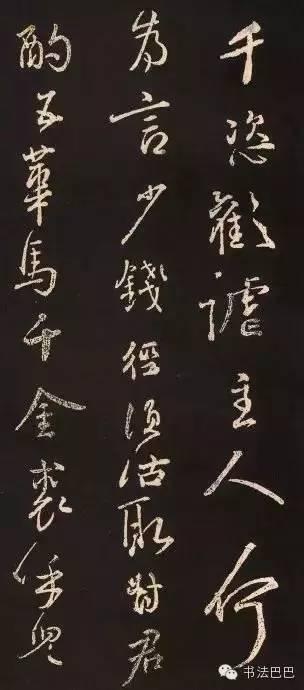 千恣歡謔主人何
為言少錢徑須沽取對君
酌五華馬千金裘呼兒
书法巴巴